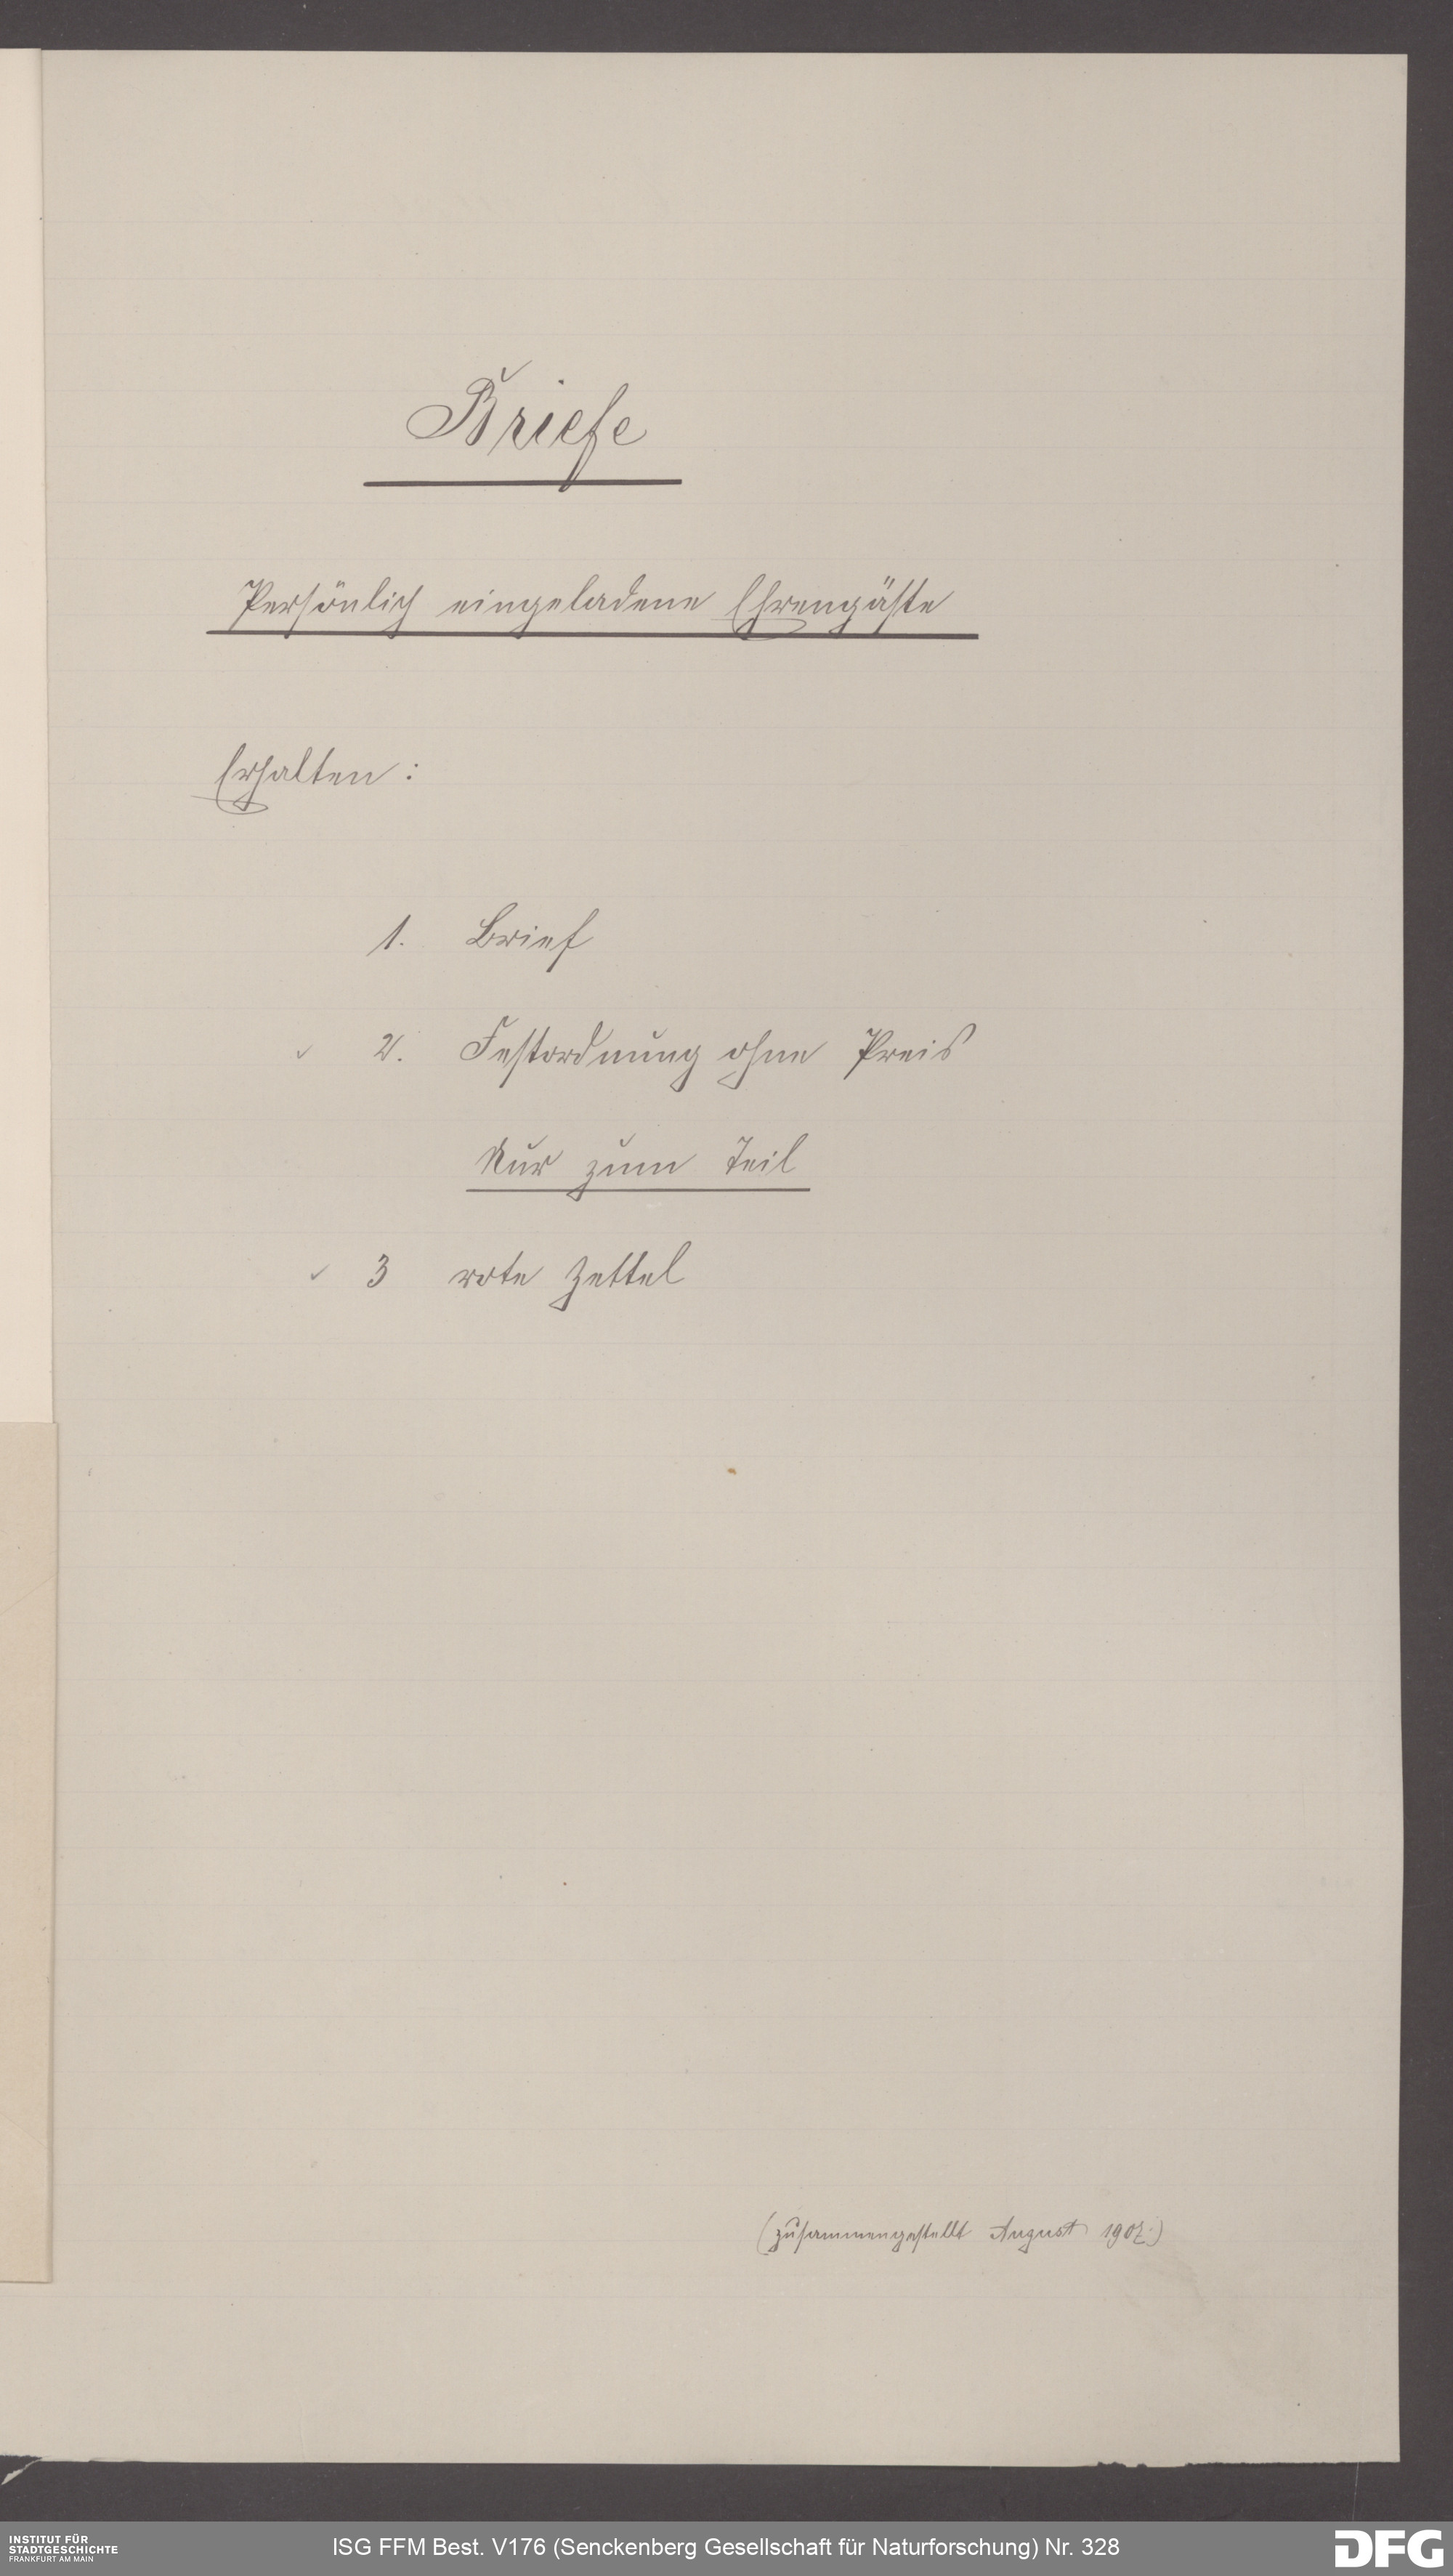 Briefe
Persönlich eingeladene Ehrengäste
Erhalten :
1. Brief
✓ 2. Festordnung ohne Preis
Nur zum Teil
✓ 3 rote Zettel
(zusammengestellt August 1907.)
INSTITUT FÜR
STADTGESCHICHTE
FRANKFURT AM MAIN
ISG FFM Best. V176 (Senckenberg Gesellschaft für Naturforschung) Nr. 328
DFG